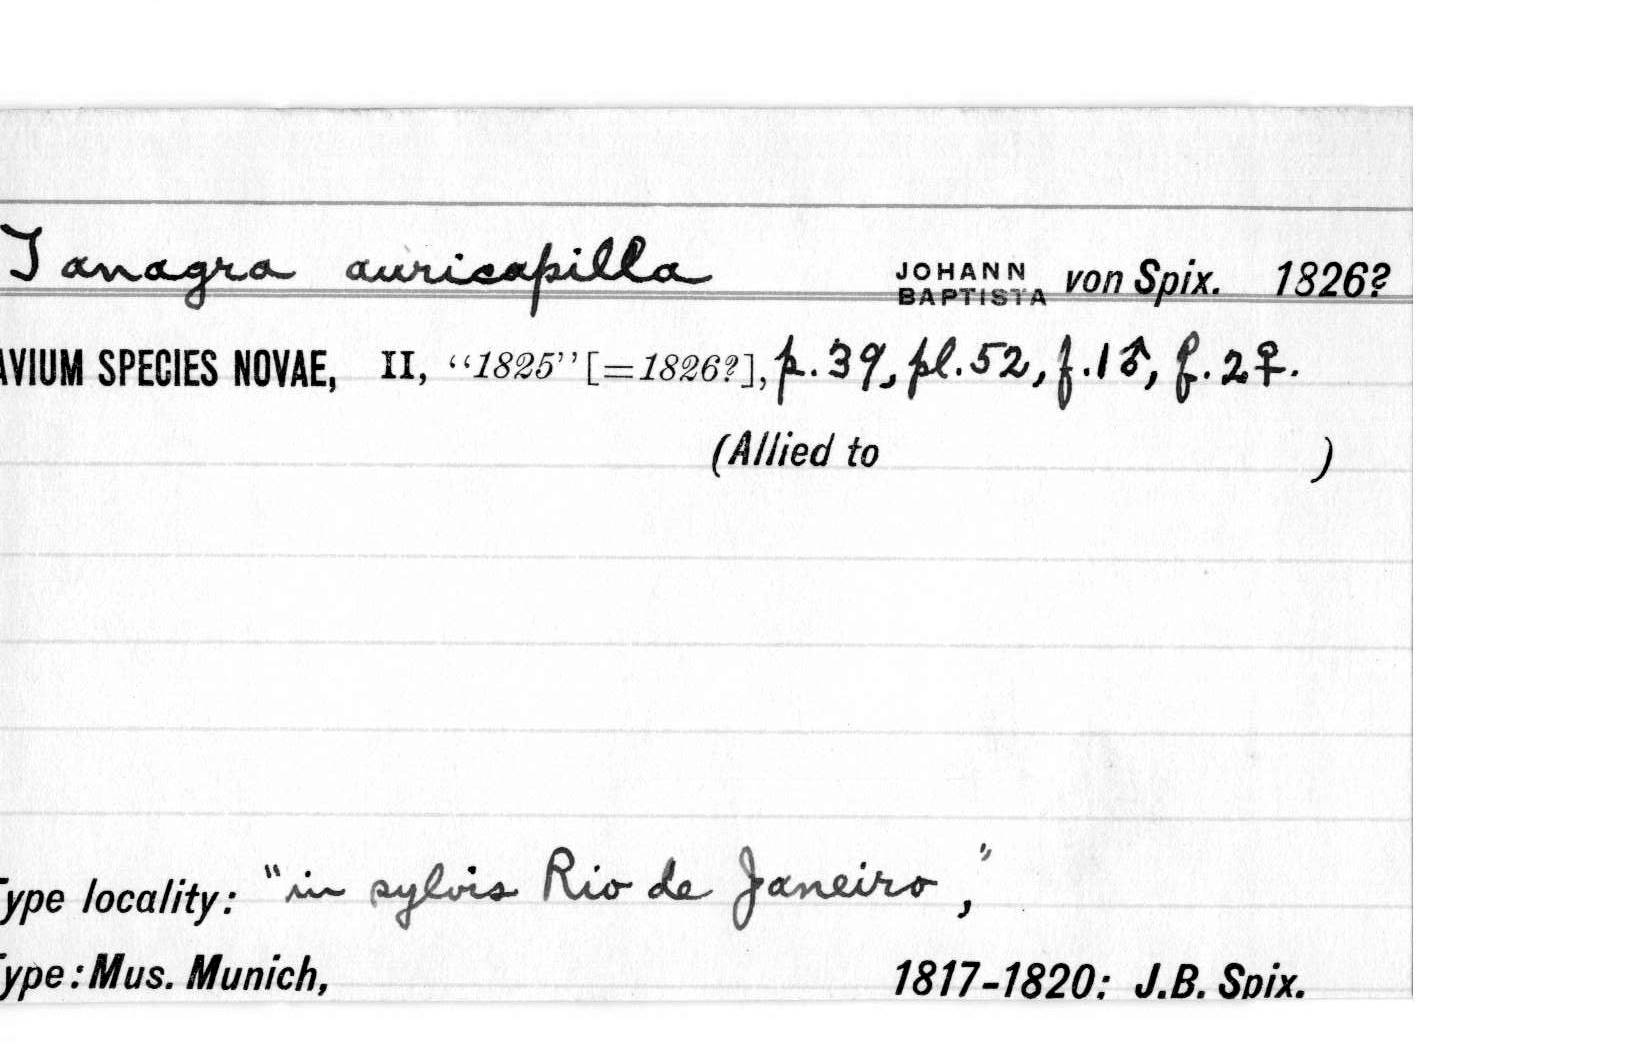 Tanagra auricapilla JOHANN BAPTISTA von Spix. 1826?
AVIUM SPECIES NOVAE, II, “1825” [=1826?], p. 39, pl. 52, f. 1 ♂, f. 2 ♀.
(Allied to )
Type locality: "in sylvis Rio de Janeiro,"
Type: Mus. Munich, 1817-1820; J.B. Spix.